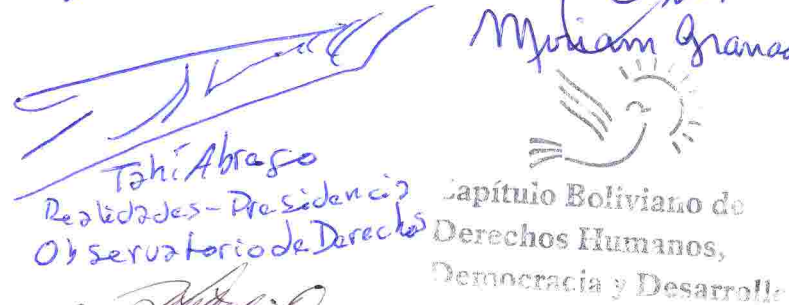 Miriam Grana
Tahí Abrego
Realidades - Presidencia
Observatorio de Derechos
Capítulo Boliviano de
Derechos Humanos,
Democracia y Desarrollo